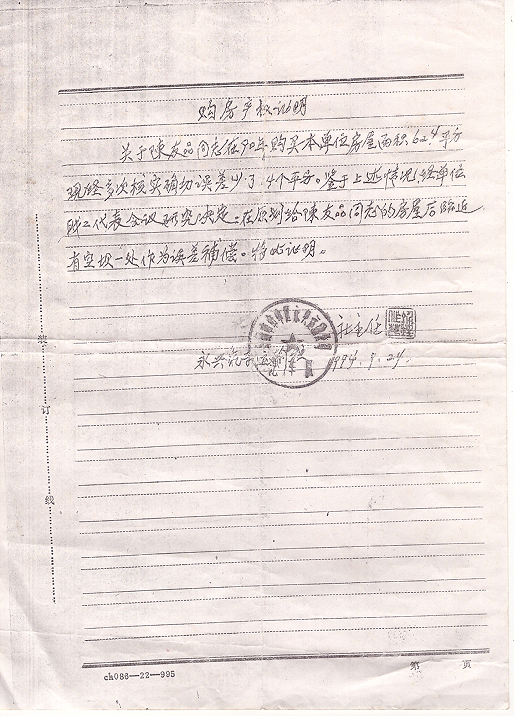 购房产权证明
关于陳友品同志在90年购买本单位房屋面积62.4平方
现经多次核实确切误差少了4个平方。鉴于上述情况经单位
职工代表会议研究决定。在原划给陳友品同志的房屋后临近
有空坝一处作为误差補偿。特此证明。
社主任
永兴 1994.9.24.
装
订
线
第 页
ch086—22—995